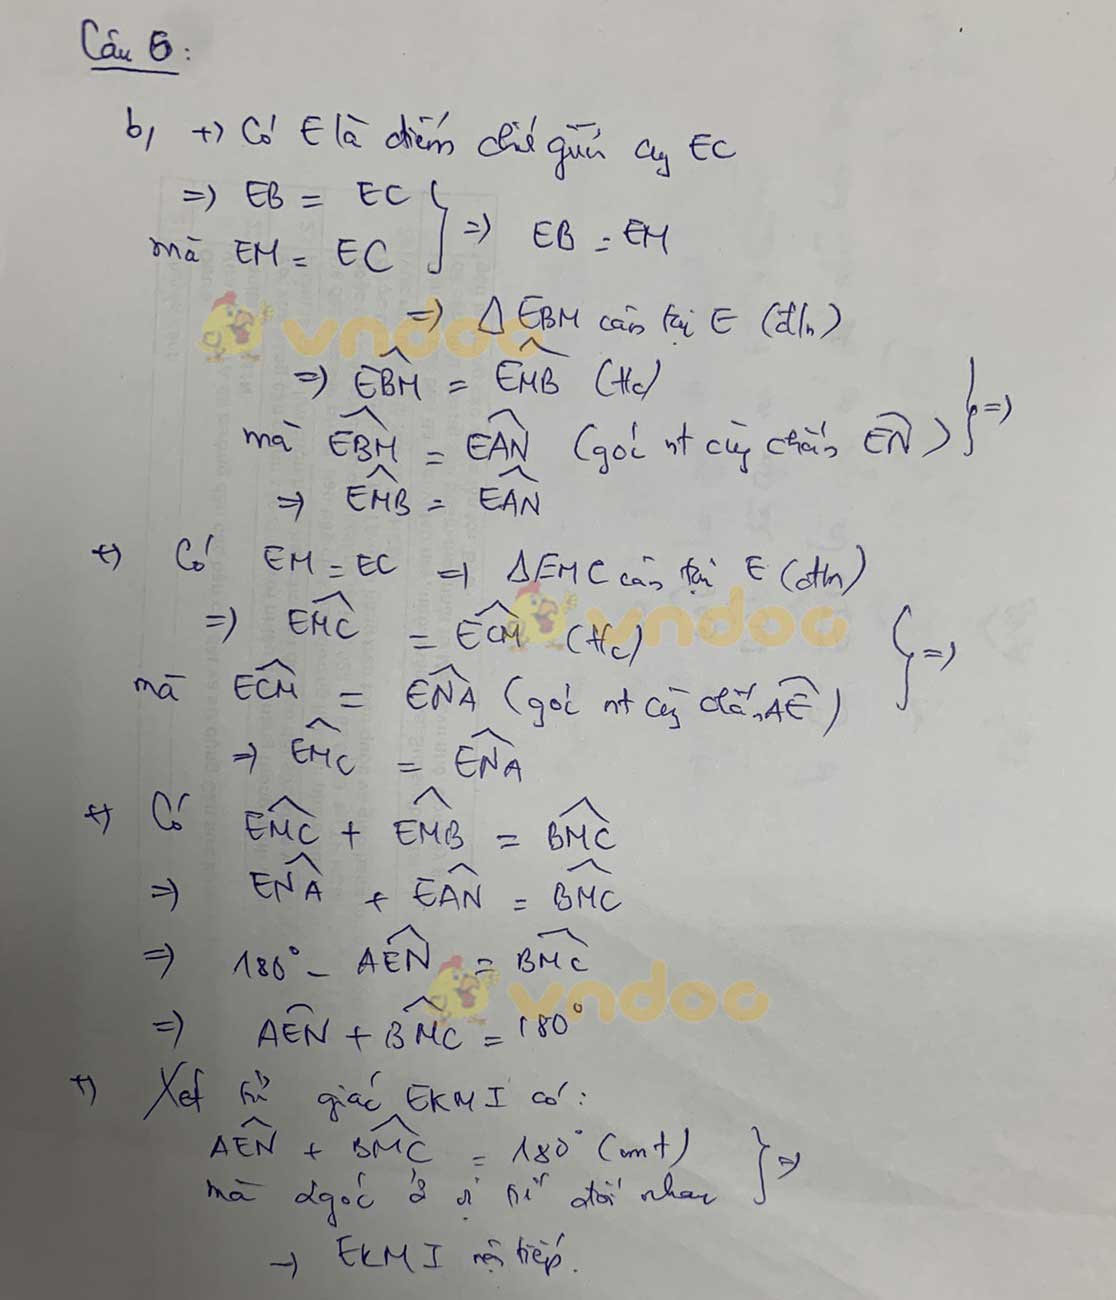 Câu 5:
b, +) Có E là điểm chính giữa cg EC
=> EB = EC
mà EM = EC } => EB = EM
=> Δ EBM cân tại E (đ/n)
=> EBM = EMB (t/c)
mà EBM = EAN (góc nt cùng chắn EN) } =>
=> EMB = EAN
+) Có EM = EC => ΔEMC cân tại E (đ/n)
=> EMC = ECM (t/c) } =>
mà ECM = ENA (góc nt cùng chắn AE)
=> EMC = ENA
+) Có EMC + EMB = BMC
=> ENA + EAN = BMC
=> 180° - AEN = BMC
=> AEN + BMC = 180°
+) Xét tứ giác EKMI có:
AEN + BMC = 180° (cmt) } =>
mà 2 góc ở vị trí đối nhau
→ EKMI nội tiếp.
vndoc
vndoc
vndoc